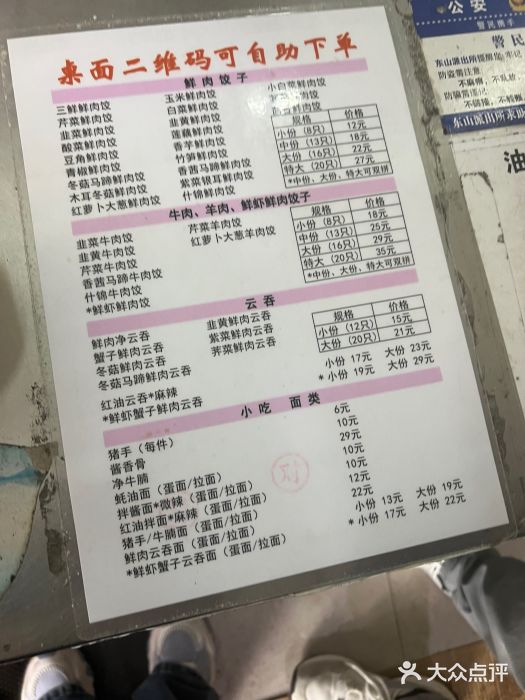 桌面二维码可自助下单
鲜肉饺子
三鲜鲜肉饺 玉米鲜肉饺 小白菜鲜肉饺
芹菜鲜肉饺 白菜鲜肉饺
韭菜鲜肉饺 韭黄鲜肉饺
酸菜鲜肉饺 莲藕鲜肉饺
豆角鲜肉饺 香芋鲜肉饺
青椒鲜肉饺 竹笋鲜肉饺
冬菇马蹄鲜肉饺 香茜马蹄鲜肉饺
木耳冬菇鲜肉饺 紫菜银耳鲜肉饺
红萝卜大葱鲜肉饺 什锦鲜肉饺
规格 价格
小份（8只） 12元
中份（13只） 18元
大份（16只） 22元
特大（20只） 27元
*中份、大份、特大可双拼
牛肉、羊肉、鲜虾鲜肉饺子
韭菜牛肉饺 芹菜羊肉饺
韭黄牛肉饺 红萝卜大葱羊肉饺
芹菜牛肉饺
香茜马蹄牛肉饺
什锦牛肉饺
*鲜虾鲜肉饺
规格 价格
小份（8只） 18元
中份（13只） 25元
大份（16只） 29元
特大（20只） 35元
*中份、大份、特大可双拼
云吞
鲜肉净云吞 韭黄鲜肉云吞
蟹子鲜肉云吞 紫菜鲜肉云吞
冬菇鲜肉云吞 荠菜鲜肉云吞
冬菇马蹄鲜肉云吞
规格 价格
小份（12只） 15元
大份（20只） 21元
红油云吞*麻辣 小份 17元 大份 23元
*鲜虾蟹子鲜肉云吞 *小份 19元 大份 29元
小吃 面类
猪手（每件） 6元
酱香骨 10元
净牛腩 29元
蚝油面（蛋面/拉面） 10元
拌酱面*微辣（蛋面/拉面） 10元
红油拌面*麻辣（蛋面/拉面） 12元
猪手/牛腩面（蛋面/拉面） 22元
鲜肉云吞面（蛋面/拉面） 小份 13元 大份 19元
*鲜虾蟹子云吞面（蛋面/拉面） *小份 17元 大份 22元
公安
警民携手
警民
东山派出所提醒您
防盗需注意
油
大众点评